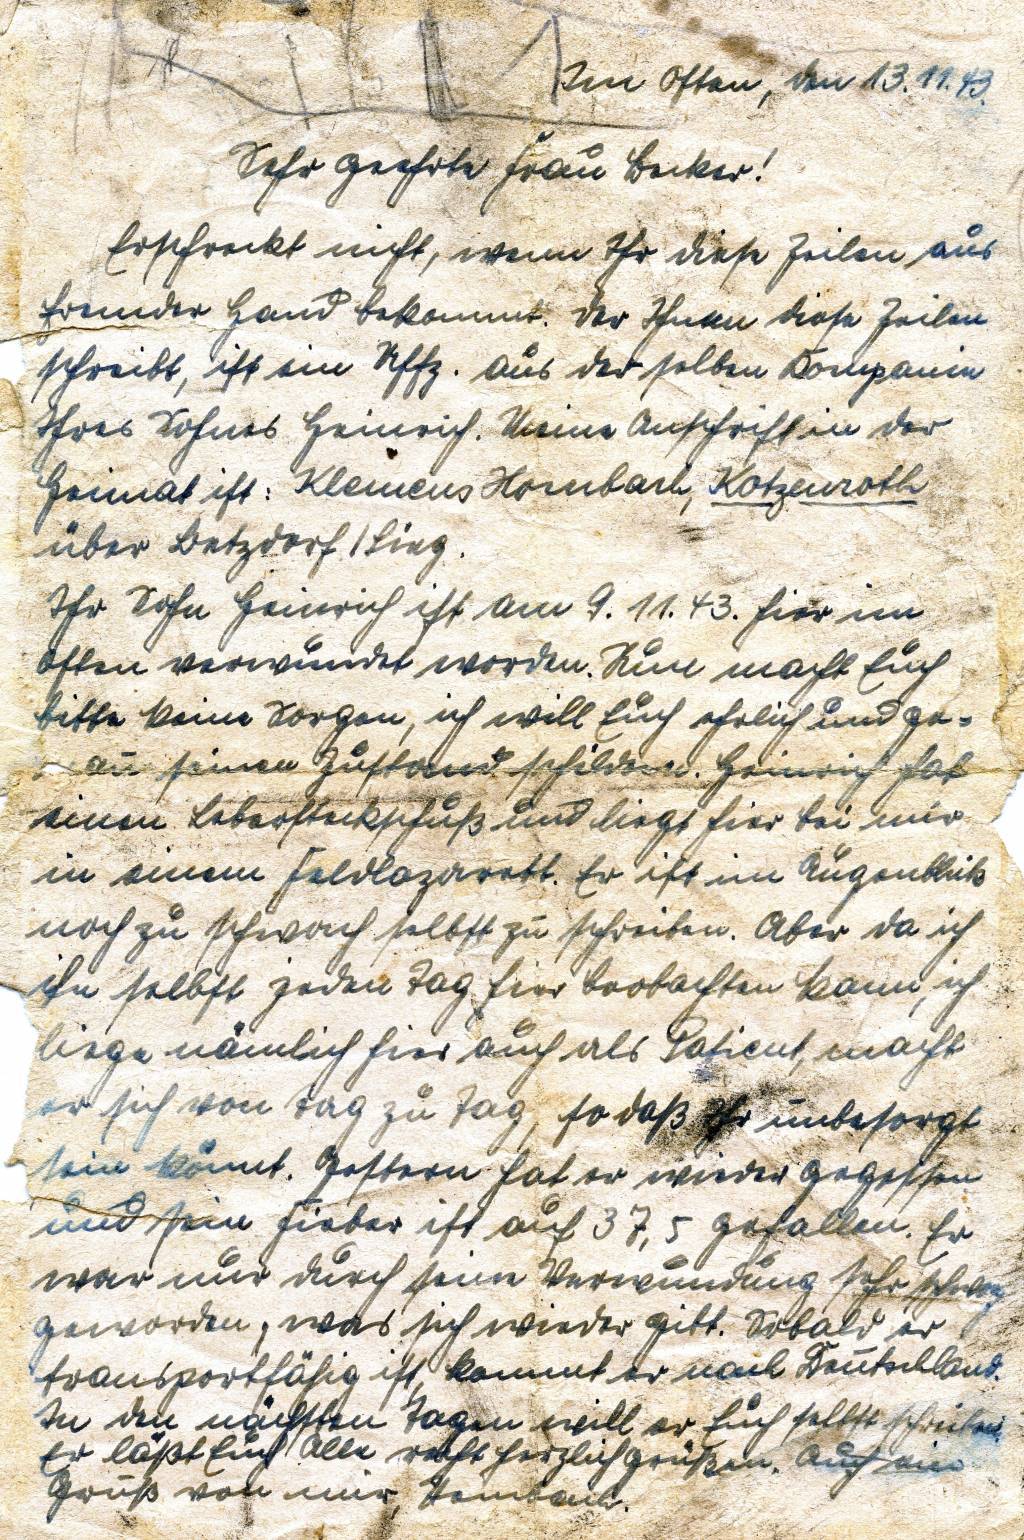 Im Osten, den 13.11.43.
Sehr geehrte Frau Becker!
Erschreckt nicht, wenn Ihr diese Zeilen aus
fremder Hand bekommt. Der Ihnen diese Zeilen
schreibt, ist ein Uffz. aus der selben Kompanie
Ihres Sohnes Heinrich. Meine Anschrift in der
Heimat ist: Klemens Hombach, Kotzenroth
über Betzdorf/Sieg.
Ihr Sohn Heinrich ist am 9.11.43. hier im
Osten verwundet worden. Nun macht Euch
bitte keine Sorgen, ich will Euch ehrlich und ge-
au seinen Zustand schildern. Heinrich hat
einen Lebersteckschuß und liegt hier bei mir
in einem Feldlazarett. Er ist im Augenblick
noch zu schwach selbst zu schreiben. Aber da ich
ihn selbst jeden Tag hier beobachten kann, ich
liege nämlich hier auch als Patient, macht
er sich von Tag zu Tag, so daß Ihr unbesorgt
sein könnt. Gestern hat er wieder gegessen
und sein Fieber ist auf 37,5 gefallen. Er
war nur durch seine Verwundung sehr schwach
geworden, was sich wieder gibt. Sobald er
transportfähig ist, kommt er nach Deutschland.
In den nächsten Tagen will er Euch selbst schreiben.
Er läßt Euch Alle recht herzlich grüßen. Auch ein
Gruß von mir, Hombach.